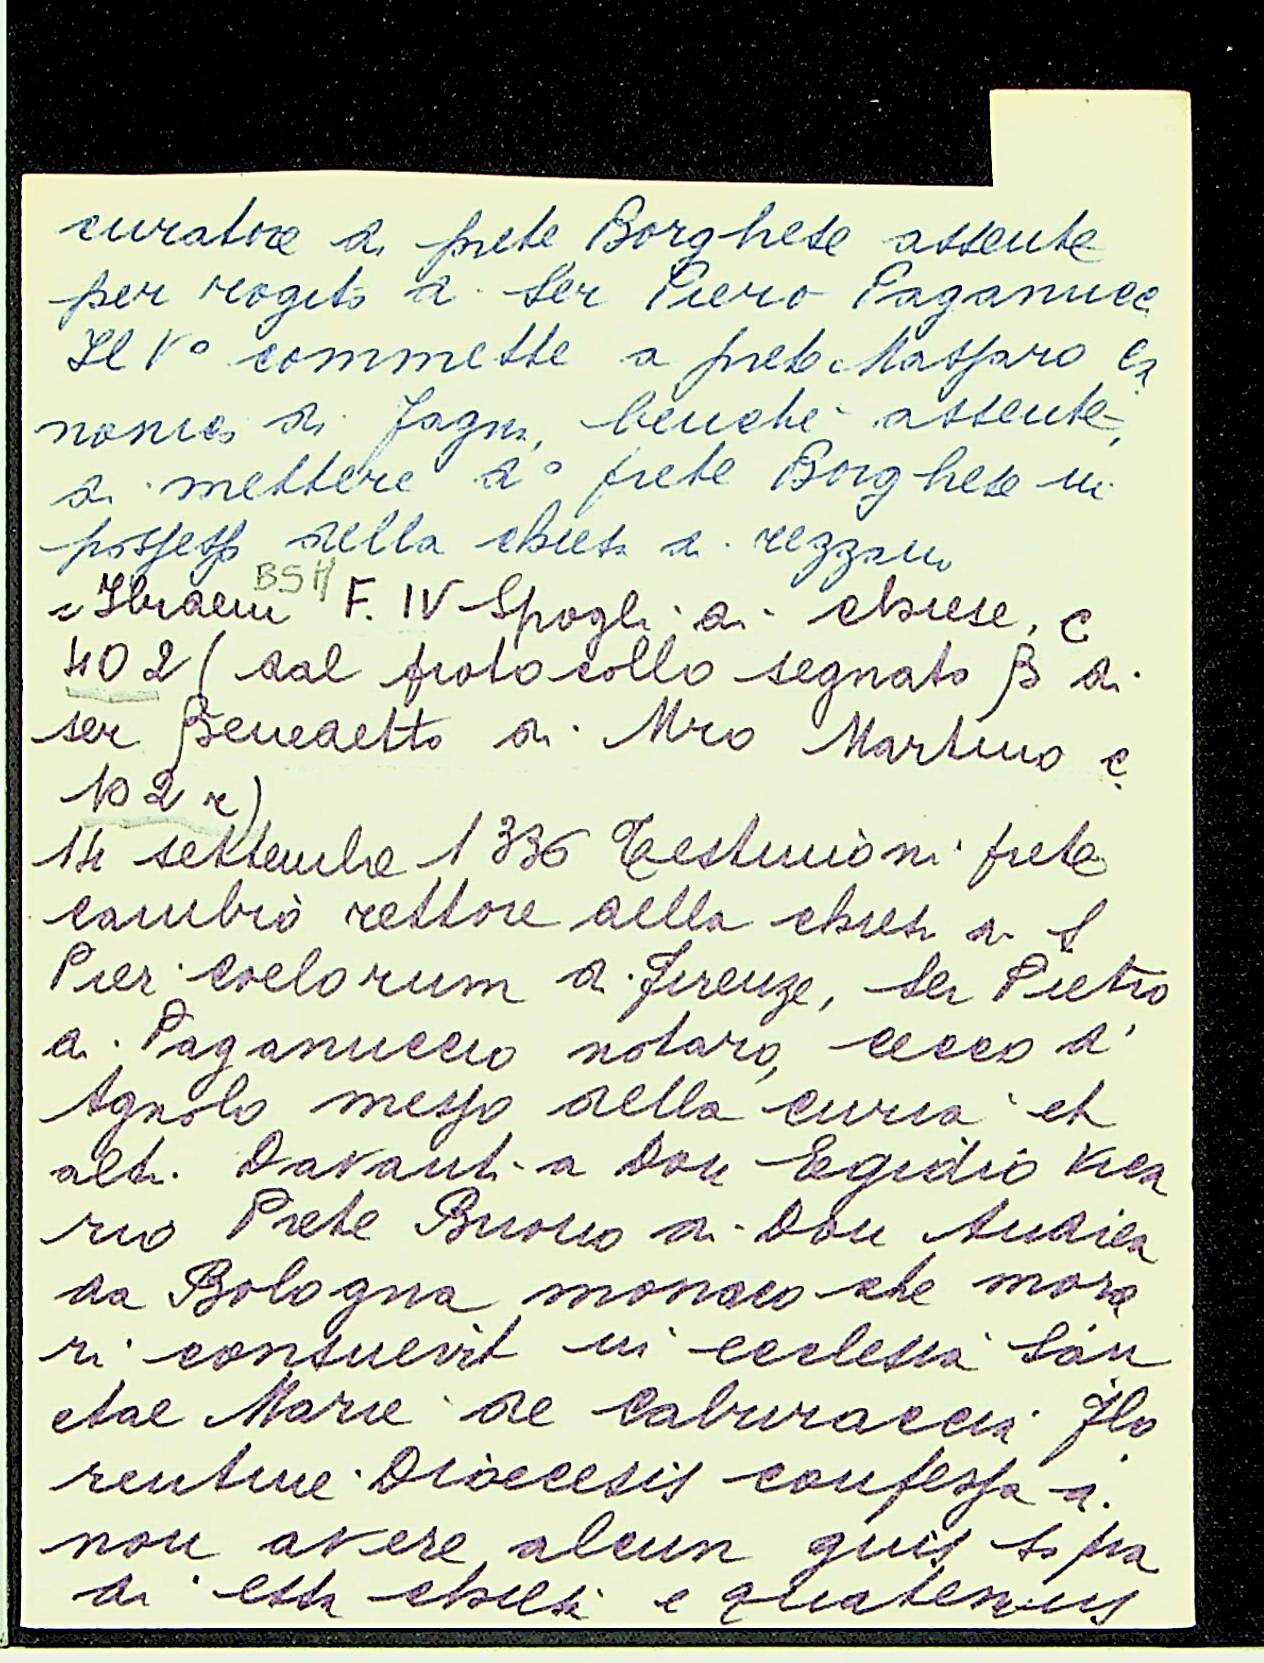 curatore di prete Borghese assente
per rogito di Ser Piero Paganucci
Il Vº commette a prete Masparo ca
nonico di Fagna, benché assente,
di mettere dº prete Borghese in
possesso della chiesa di rezzano
BSH
F. IV Spogli di chiese, c
402 (dal protocollo segnato β di
ser Benedetto di Mro Martino c
102 r)
14 settembre 1336 Testimoni prete
cambio rettore della chiesa di S
Pier coelorum di Firenze, Ser Pietro
di Paganuccio notaro, cecco d'
Agnolo messo della curia et
altri. Davanti a Don Egidio Vica
rio Prete Buono di Don Andrea
da Bologna monaco che mora
ri consuevit in ecclesia San
ctae Marie de Caburaccia Flo
rentine Dioecesis confessa di
non avere alcun guis sopra
di essa chiesa e quatenus